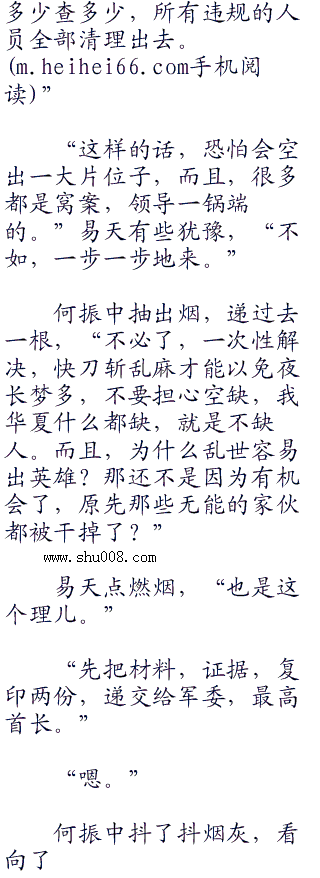 多少查多少，所有违规的人
员全部清理出去。
(m.heihei66.com手机阅
读)”
“这样的话，恐怕会空
出一大片位子，而且，很多
都是窝案，领导一锅端
的。”易天有些犹豫，“不
如，一步一步地来。”
何振中抽出烟，递过去
一根，“不必了，一次性解
决，快刀斩乱麻才能以免夜
长梦多，不要担心空缺，我
华夏什么都缺，就是不缺
人。而且，为什么乱世容易
出英雄？那还不是因为有机
会了，原先那些无能的家伙
都被干掉了？”
www.shu008.com
易天点燃烟，“也是这
个理儿。”
“先把材料，证据，复
印两份，递交给军委，最高
首长。”
“嗯。”
何振中抖了抖烟灰，看
向了